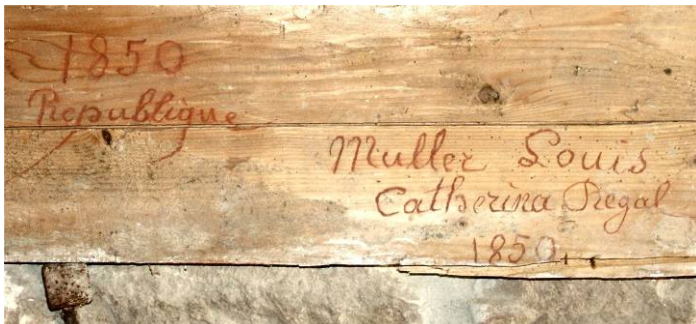 1850
Republique
Muller Louis
Catherina Regal
1850